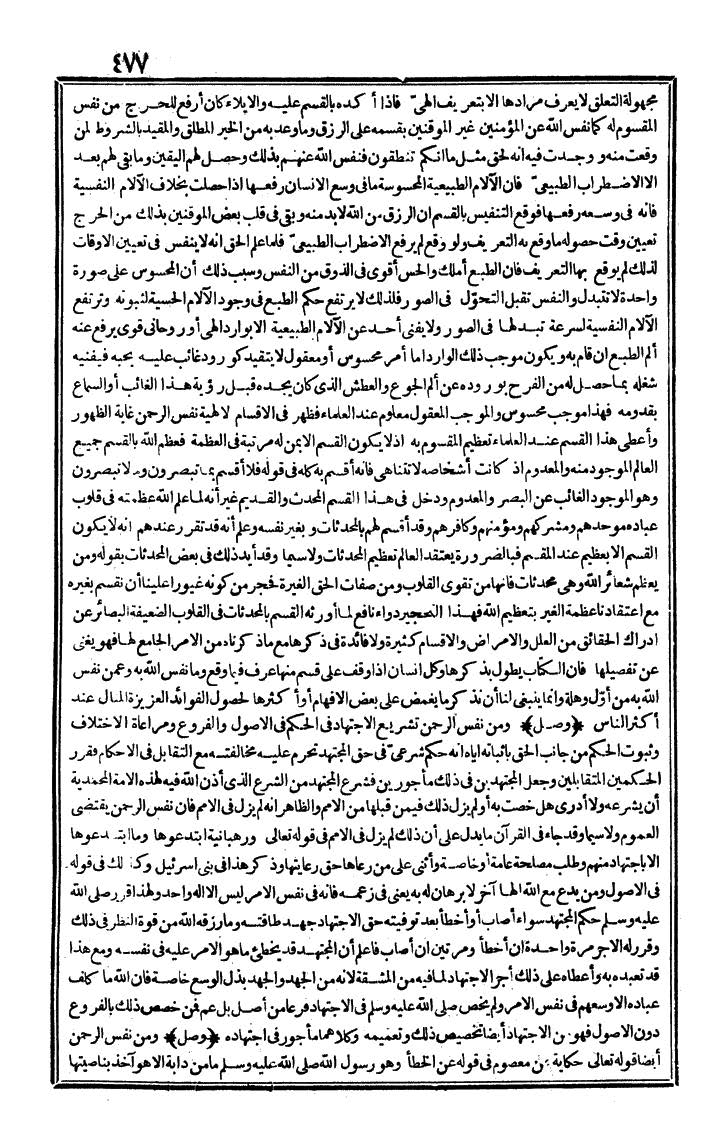 ٤٧٧
مجهولة التعلق لا يعرف مرادها الا بتعريف الهى فاذا أكده بالقسم عليه والايلاء كان أرفع للحرج من نفس
المقسوم له كما نفس الله عن المؤمنين غير الموقنين بقسمه على الرزق وما وعد به من الخير المطلق والمقيد بالشروط لمن
وقعت منه ووجدت فيه انه لحق مثل ما انكم تنطقون فنفس الله عنهم بذلك وحصل لهم اليقين وما بقى لهم بعد
الا الاضطراب الطبيعى فان الآلام الطبيعية المحسوسة ما فى وسع الانسان رفعها اذا حصلت بخلاف الآلام النفسية
فانه فى وسعه رفعها فوقع التنفيس بالقسم ان الرزق من الله لابد منه وبقى فى قلب بعض الموقنين بذلك من الحرج
تعيين وقت حصوله ما وقع به التعريف ولو وقع لم يرفع الاضطراب الطبيعى فلما علم الحق انه لا ينفس فى تعيين الاوقات
لذلك لم يوقع بها التعريف فان الطبع أملك والحس أقوى فى الذوق من النفس وسبب ذلك أن المحسوس على صورة
واحدة لا تتبدل والنفس تقبل التحوّل فى الصور فلذلك لا يرتفع حكم الطبع فى وجود الآلام الحسية لثبوته وترتفع
الآلام النفسية لسرعة تبدلها فى الصور ولا يفنى أحد عن الآلام الطبيعية الا بوارد الهى أو روحانى قوى يرفع عنه
ألم الطبع ان قام به ويكون موجب ذلك الوارد اما أمر محسوس أو معقول لا يتقيد كورود غائب عليه يحبه فيفنيه
شغله بما حصل له من الفرح بوروده عن ألم الجوع والعطش الذى كان يجده قبل رؤية هذا الغائب أو السماع
بقدومه فهذا موجب محسوس والموجب المعقول معلوم عند العلماء فظهر فى الاقسام الالهية نفس الرحمن غاية الظهور
وأعطى هذا القسم عند العلماء تعظيم المقسوم به اذ لا يكون القسم الا بمن له مرتبة فى العظمة فعظم الله بالقسم جميع
العالم الموجود منه والمعدوم اذ كانت أشخاصه لا تتناهى فانه أقسم به كله فى قوله فلا أقسم بما تبصرون وما لا تبصرون
وهو الموجود الغائب عن البصر والمعدوم ودخل فى هذا القسم المحدث والقديم غير أنه لما علم الله عظمته فى قلوب
عباده موحدهم ومشركهم ومؤمنهم وكافرهم وقد أقسم لهم بالمحدثات وبغير نفسه وعلم أنه قد تقرر عندهم انه لا يكون
القسم الا بعظيم عند المقسم فبالضرورة يعتقد العالم تعظيم المحدثات ولا سيما وقد أيد ذلك فى بعض المحدثات بقوله ومن
يعظم شعائر الله وهى محدثات فانها من تقوى القلوب ومن صفات الحق الغيرة فحجر من كونه غيورا علينا أن نقسم بغيره
مع اعتقادنا عظمة الغير بتعظيم الله فهذا التحجير دواء نافع لما أورثه القسم بالمحدثات فى القلوب الضعيفة البصائر عن
ادراك الحقائق من العلل والامراض والاقسام كثيرة ولا فائدة فى ذكرها مع ما ذكرناه من الامر الجامع لها فهو يغنى
عن تفصيلها فان الكتاب يطول بذكرها وكل انسان اذا وقف على قسم منها عرف فيما وقع وما نفس الله به وعمن نفس
الله به من أوّل وهلة وانما ينبغى لنا أن نذكر ما يغمض على بعض الافهام أو أكثرها لحصول الفوائد العزيزة المنال عند
أكثر الناس ﴿وصل﴾ ومن نفس الرحمن تشريع الاجتهاد فى الحكم فى الاصول والفروع ومراعاة الاختلاف
وثبوت الحكم من جانب الحق باثباته اياه انه حكم شرعى فى حق المجتهد تحرم عليه مخالفته مع التقابل فى الاحكام فقرر
الحكمين المتقابلين وجعل المجتهدين فى ذلك مأجورين فشرع المجتهد من الشرع الذى أذن الله فيه لهذه الامة المحمدية
أن يشرعه ولا أدرى هل خصت به أو لم يزل ذلك فيمن قبلها من الامم والظاهر انه لم يزل فى الامم فان نفس الرحمن يقتضى
العموم ولا سيما وقد جاء فى القرآن ما يدل على أن ذلك لم يزل فى الامم فى قوله تعالى ورهبانية ابتدعوها وما ابتدعوها
الا باجتهاد منهم وطلب مصلحة عامة أو خاصة وأثنى على من رعاها حق رعايتها وذكر هذا فى بنى اسرئيل وكذلك فى قوله
فى الاصول ومن يدع مع الله الها آخر لا برهان له به يعنى فى زعمه فانه فى نفس الامر ليس الا اله واحد ولهذا قرر صلى الله
عليه وسلم حكم المجتهد سواء أصاب أو أخطأ بعد توفيته حق الاجتهاد جهد طاقته وما رزقه الله من قوة النظر فى ذلك
وقرر له الاجر مرة واحدة ان أخطأ ومرتين ان أصاب فاعلم أن المجتهد قد يخطئ ما هو الامر عليه فى نفسه ومع هذا
قد تعبده به وأعطاه على ذلك أجر الاجتهاد لما فيه من المشقة لانه من الجهد والجهد بذل الوسع خاصة فان الله ما كلف
عباده الا وسعهم فى نفس الامر ولم يخص صلى الله عليه وسلم فى الاجتهاد فرعا من أصل بل عم فمن خصص ذلك بالفروع
دون الاصول فهو من الاجتهاد أيضا تخصيص ذلك وتعميمه وكلاهما مأجور فى اجتهاده ﴿وصل﴾ ومن نفس الرحمن
أيضا قوله تعالى حكاية عن معصوم فى قوله عن الخطأ وهو رسول الله صلى الله عليه وسلم ما من دابة الا هو آخذ بناصيتها